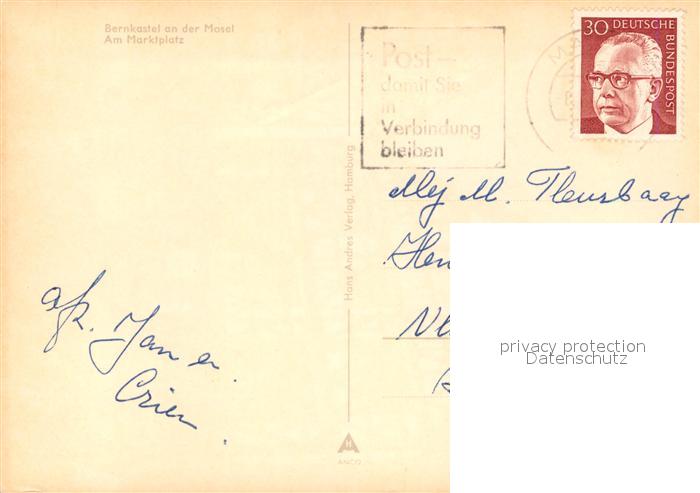 Bernkastel an der Mosel
Am Marktplatz
Post –
damit Sie
in
Verbindung
bleiben
30 DEUTSCHE
BUNDESPOST
Hans Andres Verlag, Hamburg
Mej M.
afz. Jan en
ANCO
privacy protection
Datenschutz